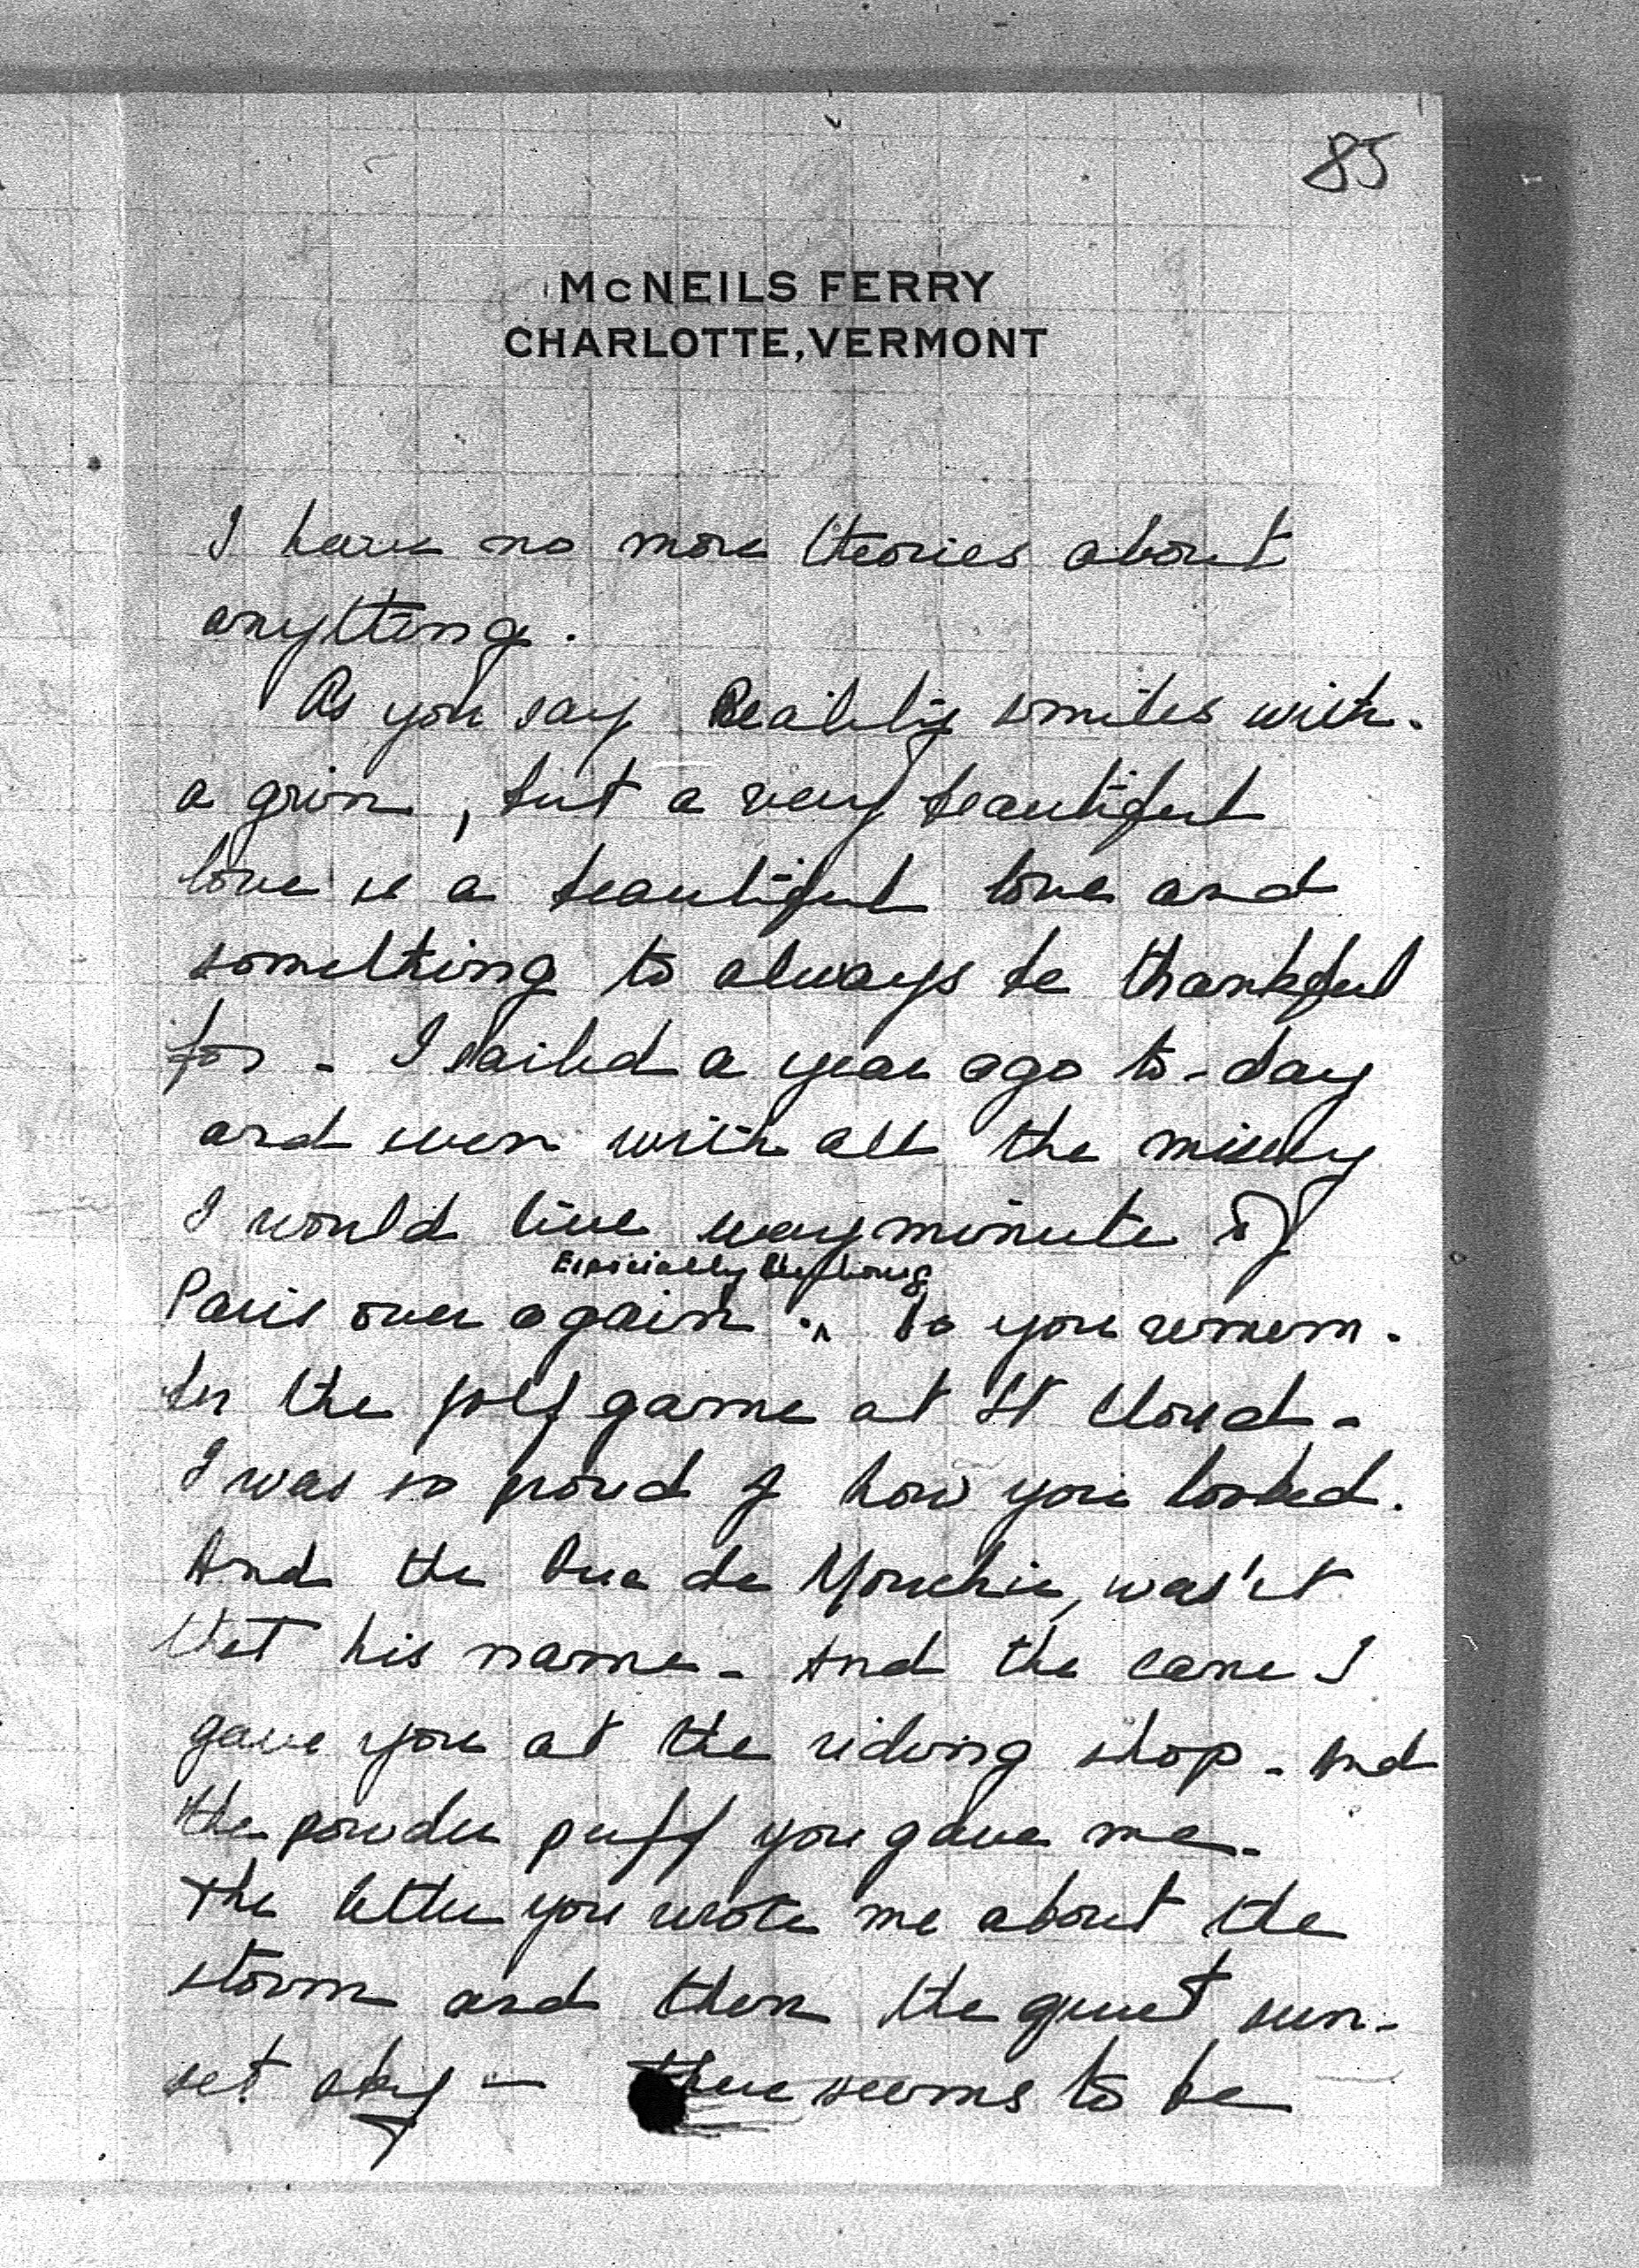 85
McNEILS FERRY
CHARLOTTE, VERMONT
I have no more theories about
anything.
As you say Reality smiles with
a grin, but a very beautiful
love is a beautiful love and
something to always be thankful
for - I sailed a year ago to-day
and even with all the misery
I would live every minute of
Especially
Paris over again. Do you remem-
ber the golf game at St Cloud -
I was so proud of how you looked.
And the Duc de Mouchie, was'nt
that his name - And the cane I
gave you at the riding shop - And
the powder puff you gave me -
The letter you wrote me about the
storm and then the quiet sun-
set sky - There seems to be